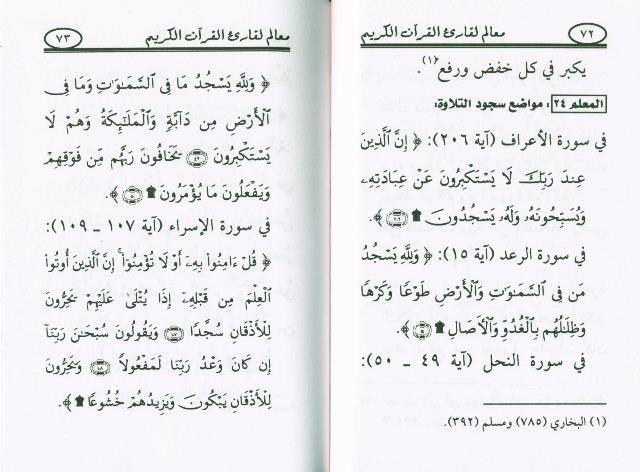 ٧٢ معالم لقارئ القرآن الكريم
يكبر في كل خفض ورفع(١).
المعلم ٢٤: مواضع سجود التلاوة:
في سورة الأعراف (آية ٢٠٦): ﴿ إِنَّ الَّذِينَ
عِندَ رَبِّكَ لَا يَسْتَكْبِرُونَ عَنْ عِبَادَتِهِۦ
وَيُسَبِّحُونَهُۥ وَلَهُۥ يَسْجُدُونَ ۩ ۝٢٠٦ ﴾.
في سورة الرعد (آية ١٥): ﴿ وَلِلَّهِ يَسْجُدُ
مَن فِى السَّمَٰوَٰتِ وَالْأَرْضِ طَوْعًا وَكَرْهًا
وَظِلَٰلُهُم بِالْغُدُوِّ وَالْءَاصَالِ ۩ ۝١٥ ﴾.
في سورة النحل (آية ٤٩ ـ ٥٠):
(١) البخاري (٧٨٥) ومسلم (٣٩٢).
معالم لقارئ القرآن الكريم ٧٣
﴿ وَلِلَّهِ يَسْجُدُ مَا فِى السَّمَٰوَٰتِ وَمَا فِى
الْأَرْضِ مِن دَآبَّةٍ وَالْمَلَٰٓئِكَةُ وَهُمْ لَا
يَسْتَكْبِرُونَ ۝٤٩ يَخَافُونَ رَبَّهُم مِّن فَوْقِهِمْ
وَيَفْعَلُونَ مَا يُؤْمَرُونَ ۩ ۝٥٠ ﴾.
في سورة الإسراء (آية ١٠٧ ـ ١٠٩):
﴿ قُلْ ءَامِنُوا۟ بِهِۦٓ أَوْ لَا تُؤْمِنُوٓا۟ ۚ إِنَّ الَّذِينَ أُوتُوا۟
الْعِلْمَ مِن قَبْلِهِۦٓ إِذَا يُتْلَىٰ عَلَيْهِمْ يَخِرُّونَ
لِلْأَذْقَانِ سُجَّدًا ۝١٠٧ وَيَقُولُونَ سُبْحَٰنَ رَبِّنَآ
إِن كَانَ وَعْدُ رَبِّنَا لَمَفْعُولًا ۝١٠٨ وَيَخِرُّونَ
لِلْأَذْقَانِ يَبْكُونَ وَيَزِيدُهُمْ خُشُوعًا ۩ ﴾.